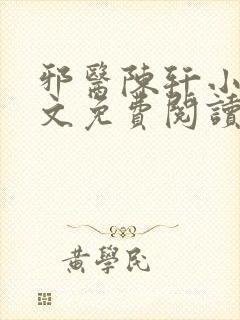 邪醫陳軒小
文免費閱讀
黃學民